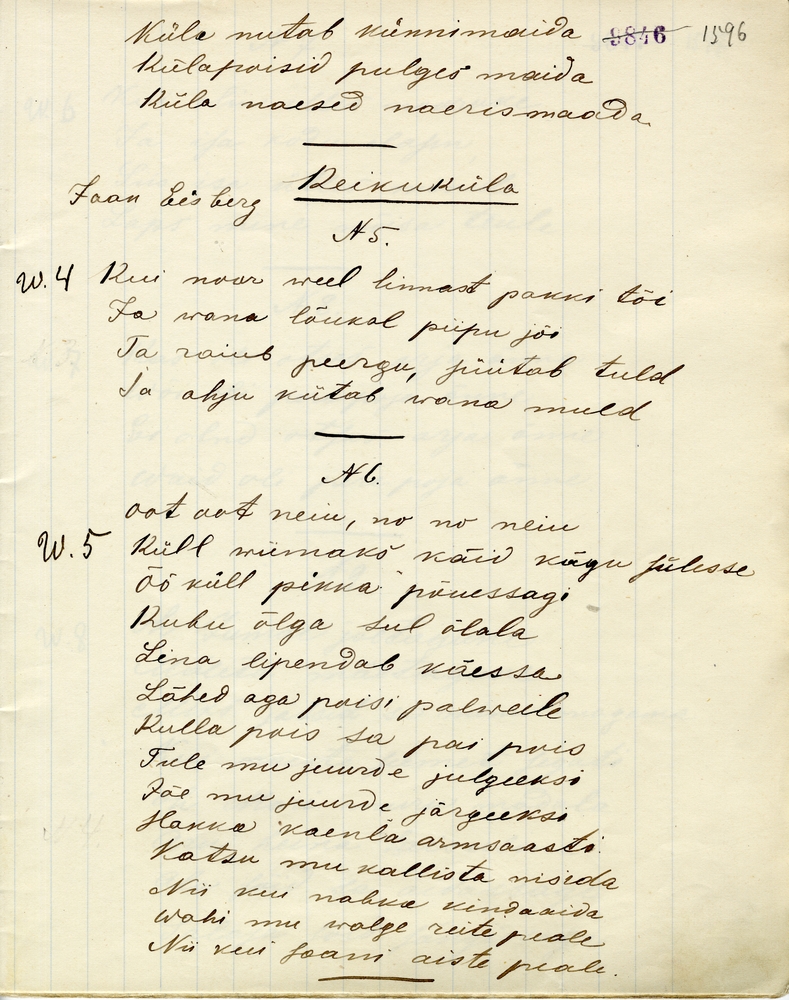 Küla nutab künnimaida
9846 1596
Külapoisid pulges maida
Küla naesed naerismaada
Jaan Eisberg Reikuküla
N 5.
W. 4 Kui noor weel linnast pakki tõi
Ja wana lõukal piipu jõi
Ta raiub peergu, süütab tuld
Ja ahju kütab wana muld
N 6.
oot oot neiu, no no neiu
W. 5 Küll wiimaks käid kägu sülesse
Öö küll pikka põuessagi
Kubu õlga sul õlala
Lina lipendab käessa
Lähed aga poisi palweile
Kulla pois sa pai pois
Tule mu juurde julgeeksi
Jäe mu juurde järgeeksi
Hakka kaenla armsaasti
Katsu mu kallista nisida
Nii kui nahka kindaaida
Wahi mu walge reite peale
Nii kui saani aiste peale.